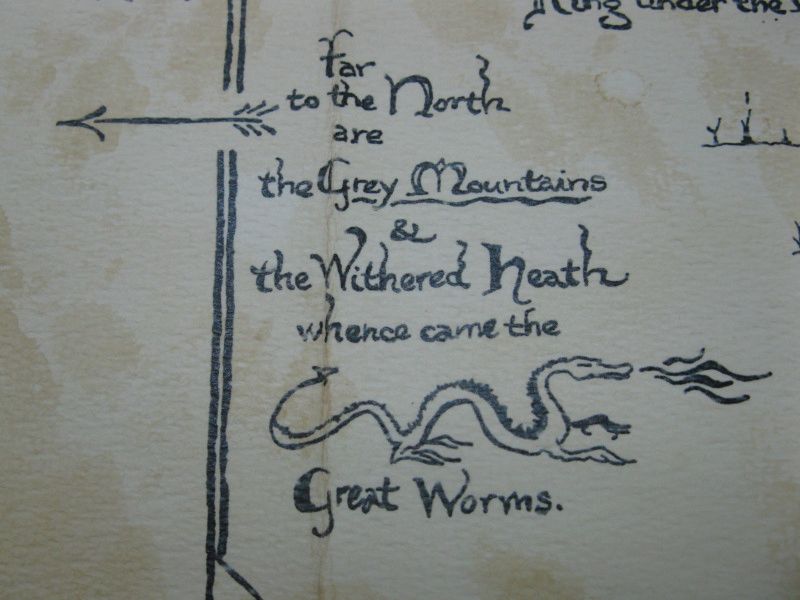 King under the
Far
to the North
are
the Grey Mountains
&
the Withered Heath
whence came the
Great Worms.